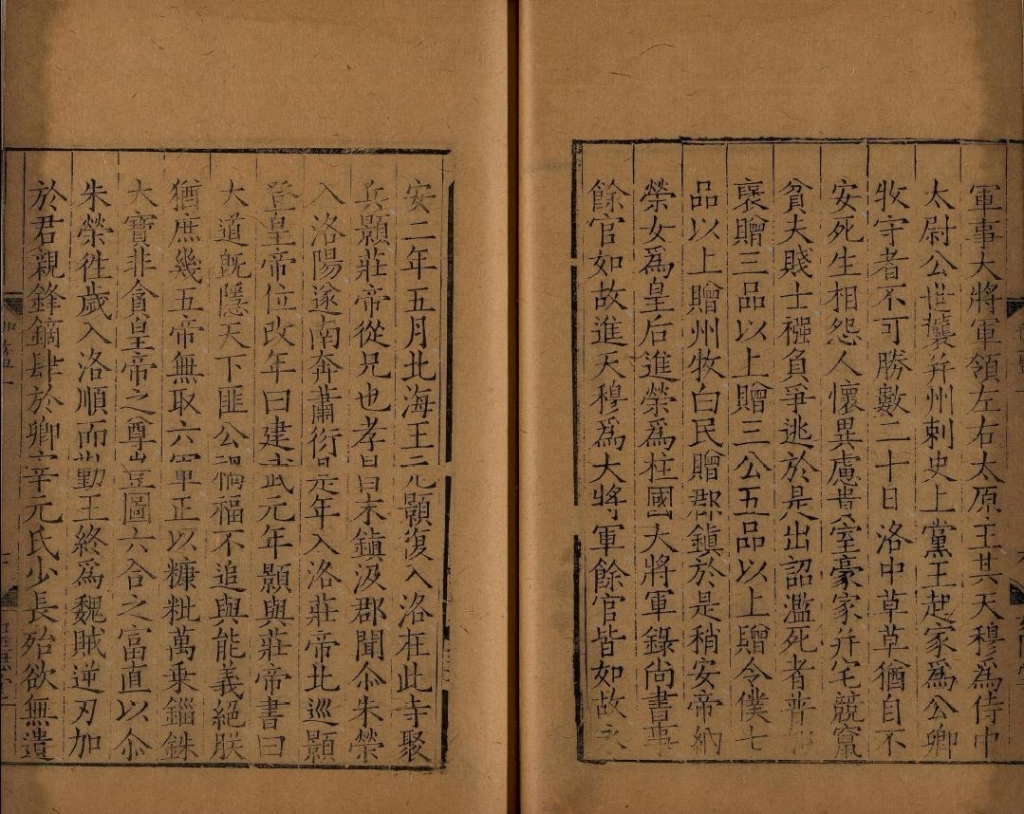 軍事大將軍領左右太原王其天穆爲侍中
太尉公世襲并州刺史上黨王起家爲公卿
牧守者不可勝數二十日洛中草草猶自不
安死生相怨人懷異慮貴室豪家弃宅競竄
貧夫賤士襁負爭逃於是出詔濫死者普加
褒贈三品以上贈三公五品以上贈令僕七
品以上贈州牧白民贈郡鎮於是稍安帝納
榮女爲皇后進榮爲柱國大將軍錄尚書事
餘官如故進天穆爲大將軍餘官皆如故永
安二年五月北海王元顥復入洛在此寺聚
兵顥莊帝從兄也孝昌末鎮汲郡聞尒朱榮
入洛陽遂南奔蕭衍是年入洛莊帝北巡顥
登皇帝位改年曰建武元年顥與莊帝書曰
大道既隱天下匪公禍福不追與能義絕朕
猶庶幾五帝無取六軍正以糠粃萬乗錙銖
大寶非貪皇帝之尊豈圖六合之富直以尒
朱榮徃歲入洛順而勤王終爲魏賊逆刃加
於君親鋒鏑肆於卿宰元氏少長殆欲無遺